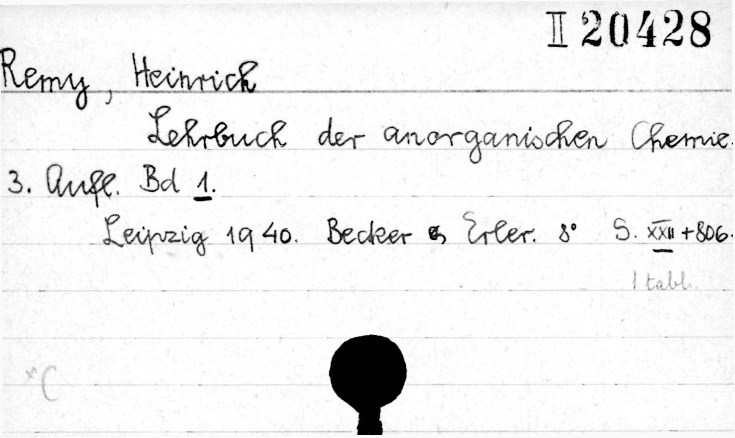 II 20428
Remy, Heinrich
Lehrbuch der anorganischen Chemie.
3. Aufl. Bd 1.
Leipzig 1940. Becker & Erler. 8° S. XXII + 806.
1 tabl.
*C